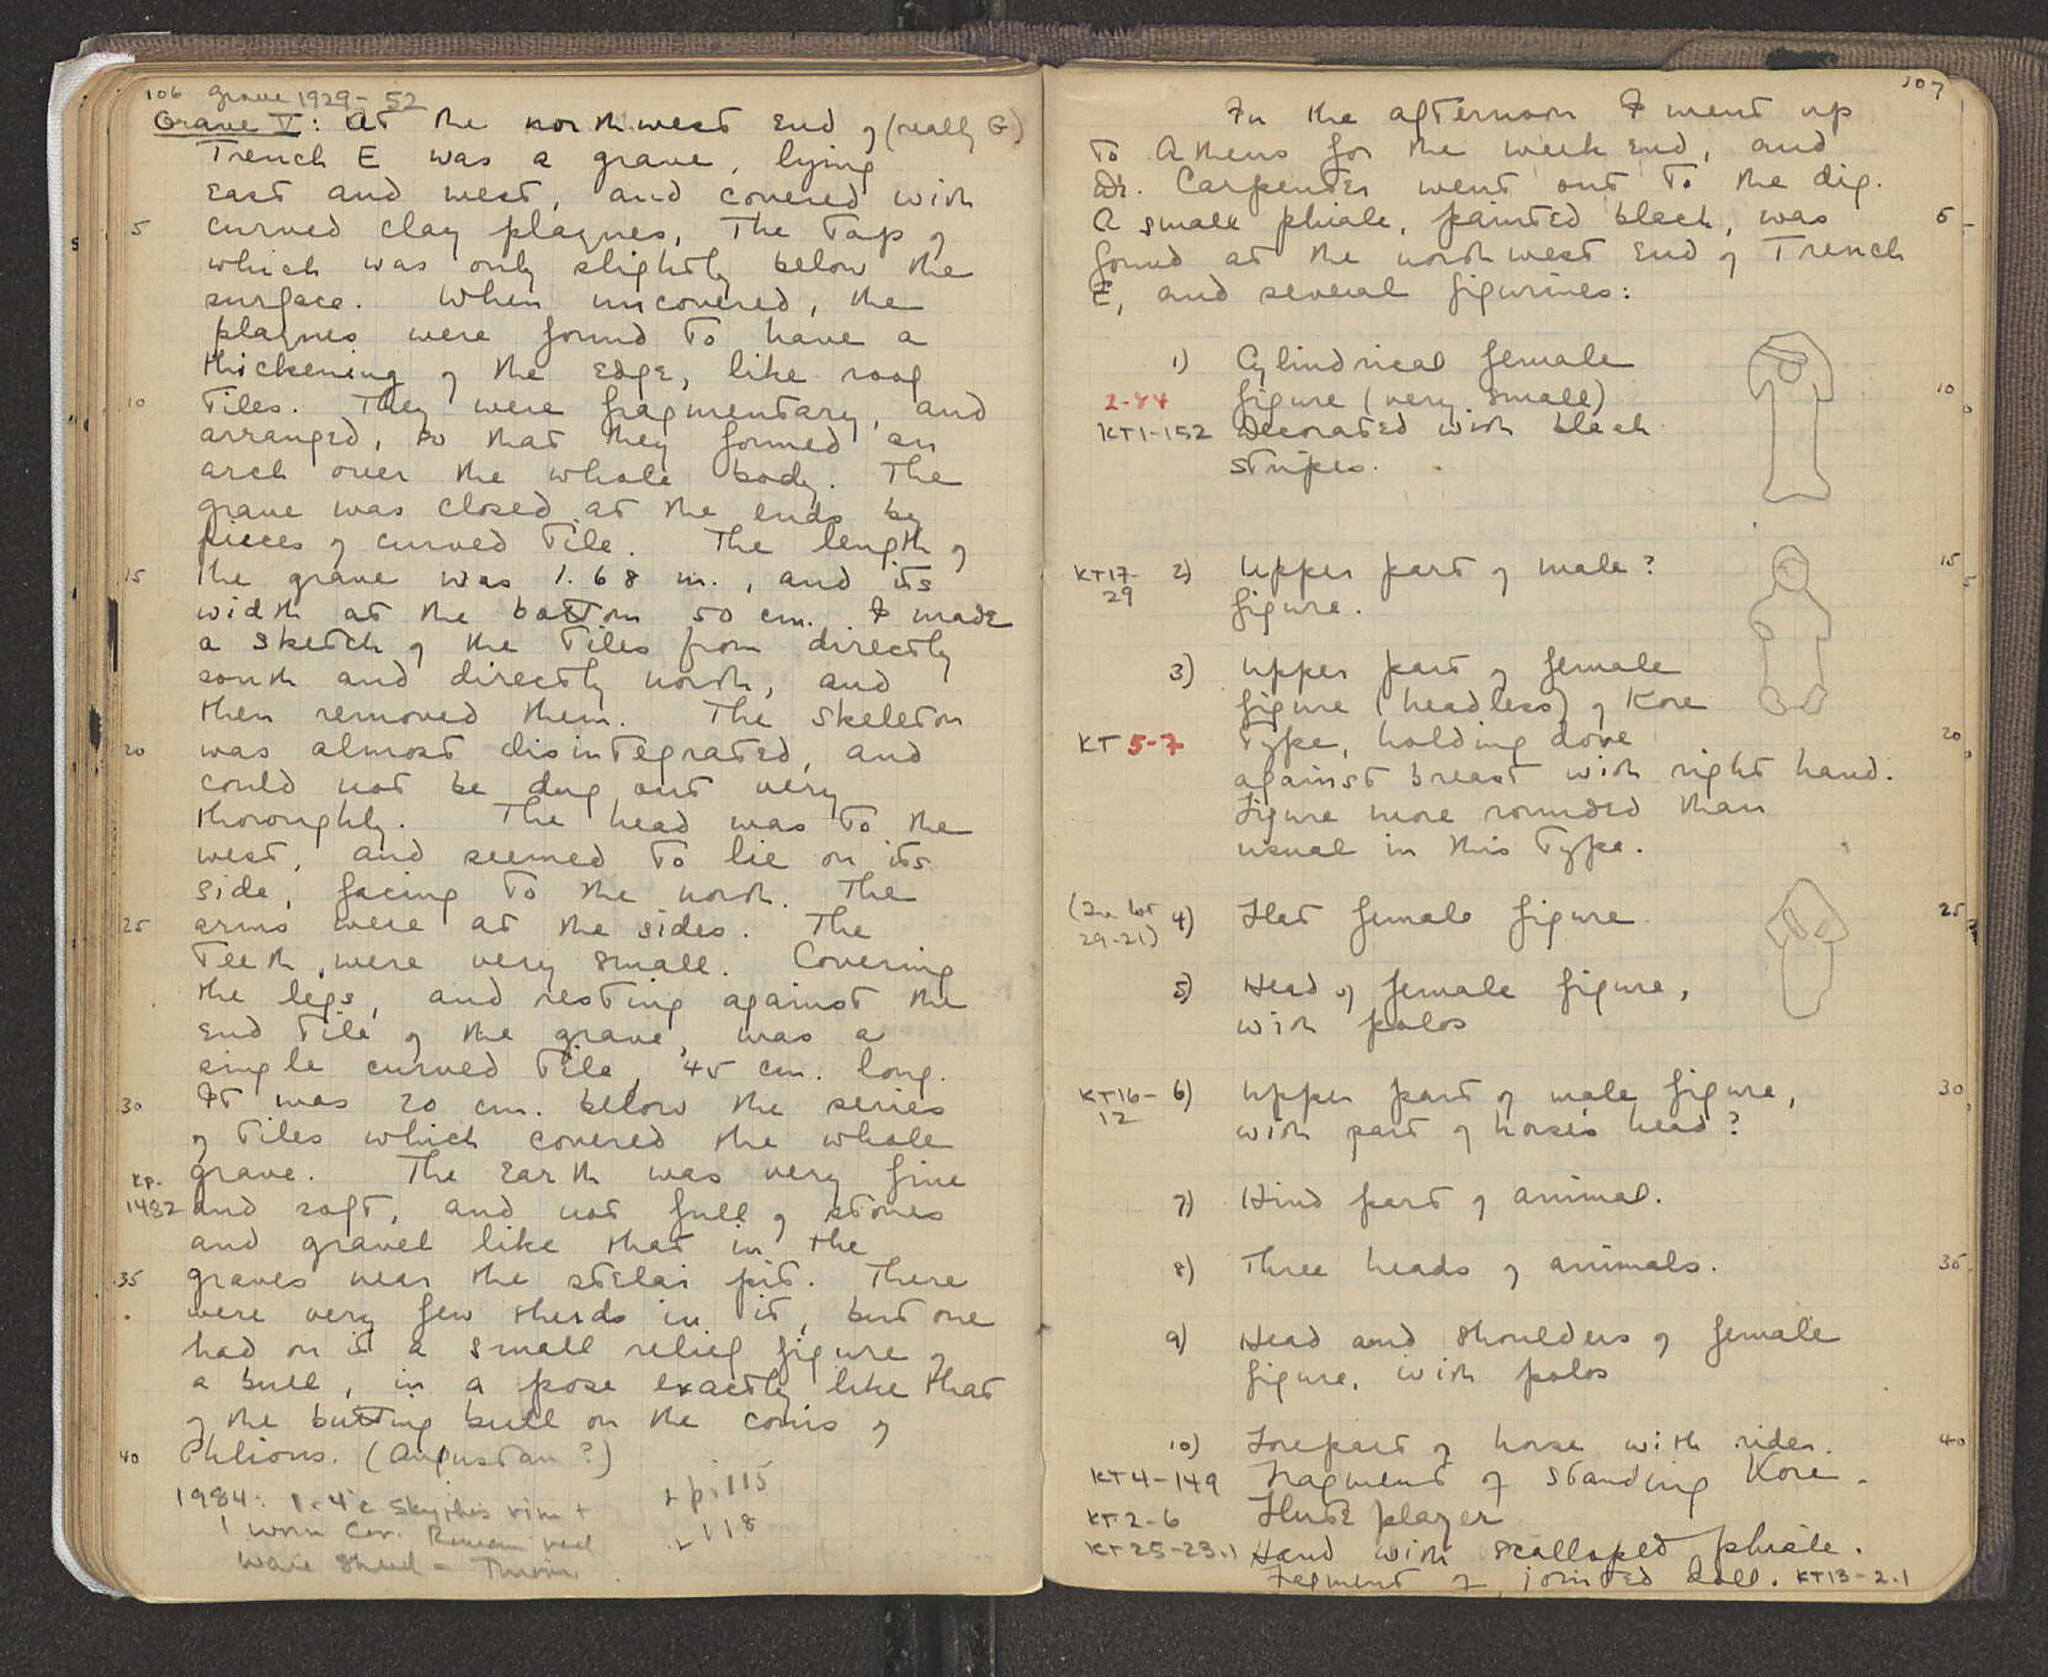 106 Grave 1929-52
Grave V: At the northwest End of (really G)
Trench E was a grave, lying
East and west, and covered with
5 curved clay plaques, The Top of
which was only slightly below the
surface. When uncovered, the
plaques were found To have a
thickening of the Edge, like roof
10 Tiles. They were fragmentary, and
arranged, so that they formed an
arch over the whole body. The
grave was closed at the ends by
pieces of curved Tile. The length of
15 the grave was 1.68 m., and its
width at the bottom 50 cm. I made
a sketch of the Tiles from directly
south and directly north, and
then removed them. The skeleton
20 was almost disintegrated, and
could not be dug out very
thoroughly. The head was To the
west, and seemed To lie on its
side, facing To the north. The
25 arms were at the sides. The
Teeth were very small. Covering
the legs, and resting against the
End Tile of the grave, was a
single curved Tile, 45 cm. long.
30 It was 20 cm. below the series
of Tiles which covered the whole
grave. The Earth was very fine
KP-
1482 and soft, and not full of stones
and gravel like that in the
35 graves near the stelai pit. There
were very few sherds in it, but one
had on it a small relief figure of
a bull, in a pose exactly like that
of the butting bull on the coins of
40 Phlious. (Augustan?)
1984: 1-4c Skyphos rim +
1 worn Cor. Roman red
Ware sherd =
+ p. 115
118
107
In the afternoon I went up
To Athens for the week End, and
Dr. Carpenter went out To the dig.
A small phiale, painted black, was 5
found at the northwest End of Trench
E, and several figurines:
1) Cylindrical female
2-44 figure (very small) 10
KT1-152 Decorated with black
stripes.
KT17-29 2) Upper part of male? 15
figure.
3) Upper part of female
figure (headless) of Kore
KT 5-7 Type, holding dove 20
against breast with right hand.
Figure more rounded than
usual in this Type.
(In lot 29-21) 4) Flat female figure 25
5) Head of female figure,
with polos
KT16-12 6) Upper part of male figure, 30
with part of horse's head?
7) Hind part of animal.
8) Three heads of animals. 35
9) Head and shoulders of female
figure, with polos
10) Forepart of horse with rider. 40
KT4-149 Fragment of standing Kore.
KT2-6 Flute player
KT25-23.1 Hand with scalloped phiale.
Fragment of jointed doll. KT13-2.1